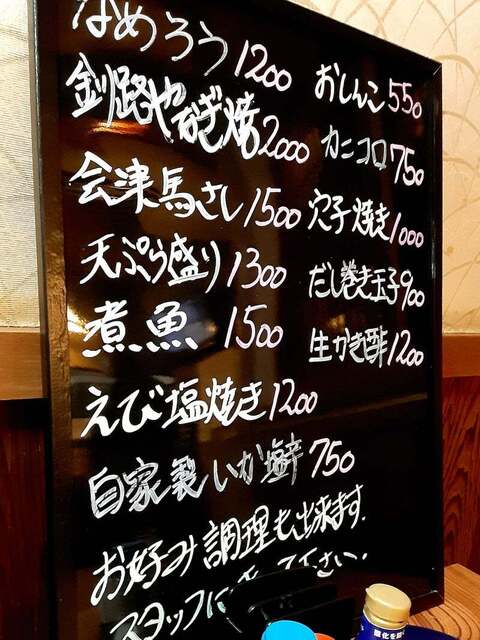 なめろう 1200
釧路やなぎ焼 2000
会津馬さし 1500
天ぷら盛り 1300
煮魚 1500
えび塩焼き 1200
自家製いか 750
おしんこ 550
カニコロ 750
穴子焼き 1000
だし巻き玉子 900
生がき酢 1200
お好み調理も出来ます.
スタッフに 下さい.